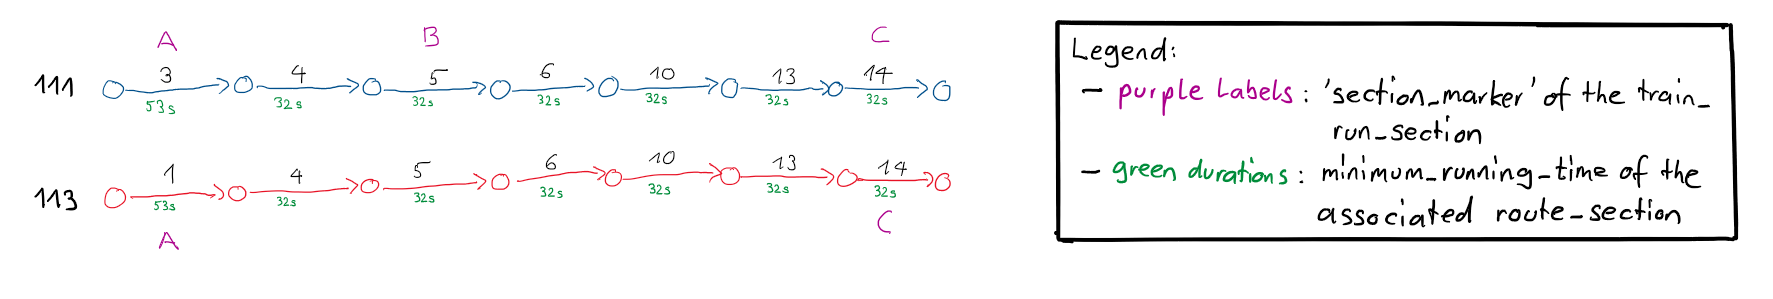 A B C
111 3 4 5 6 10 13 14
53s 32s 32s 32s 32s 32s 32s
113 1 4 5 6 10 13 14
53s 32s 32s 32s 32s 32s 32s
A C
Legend:
- purple Labels : 'section_marker' of the train_
run_section
- green durations : minimum_running_time of the
associated route_section